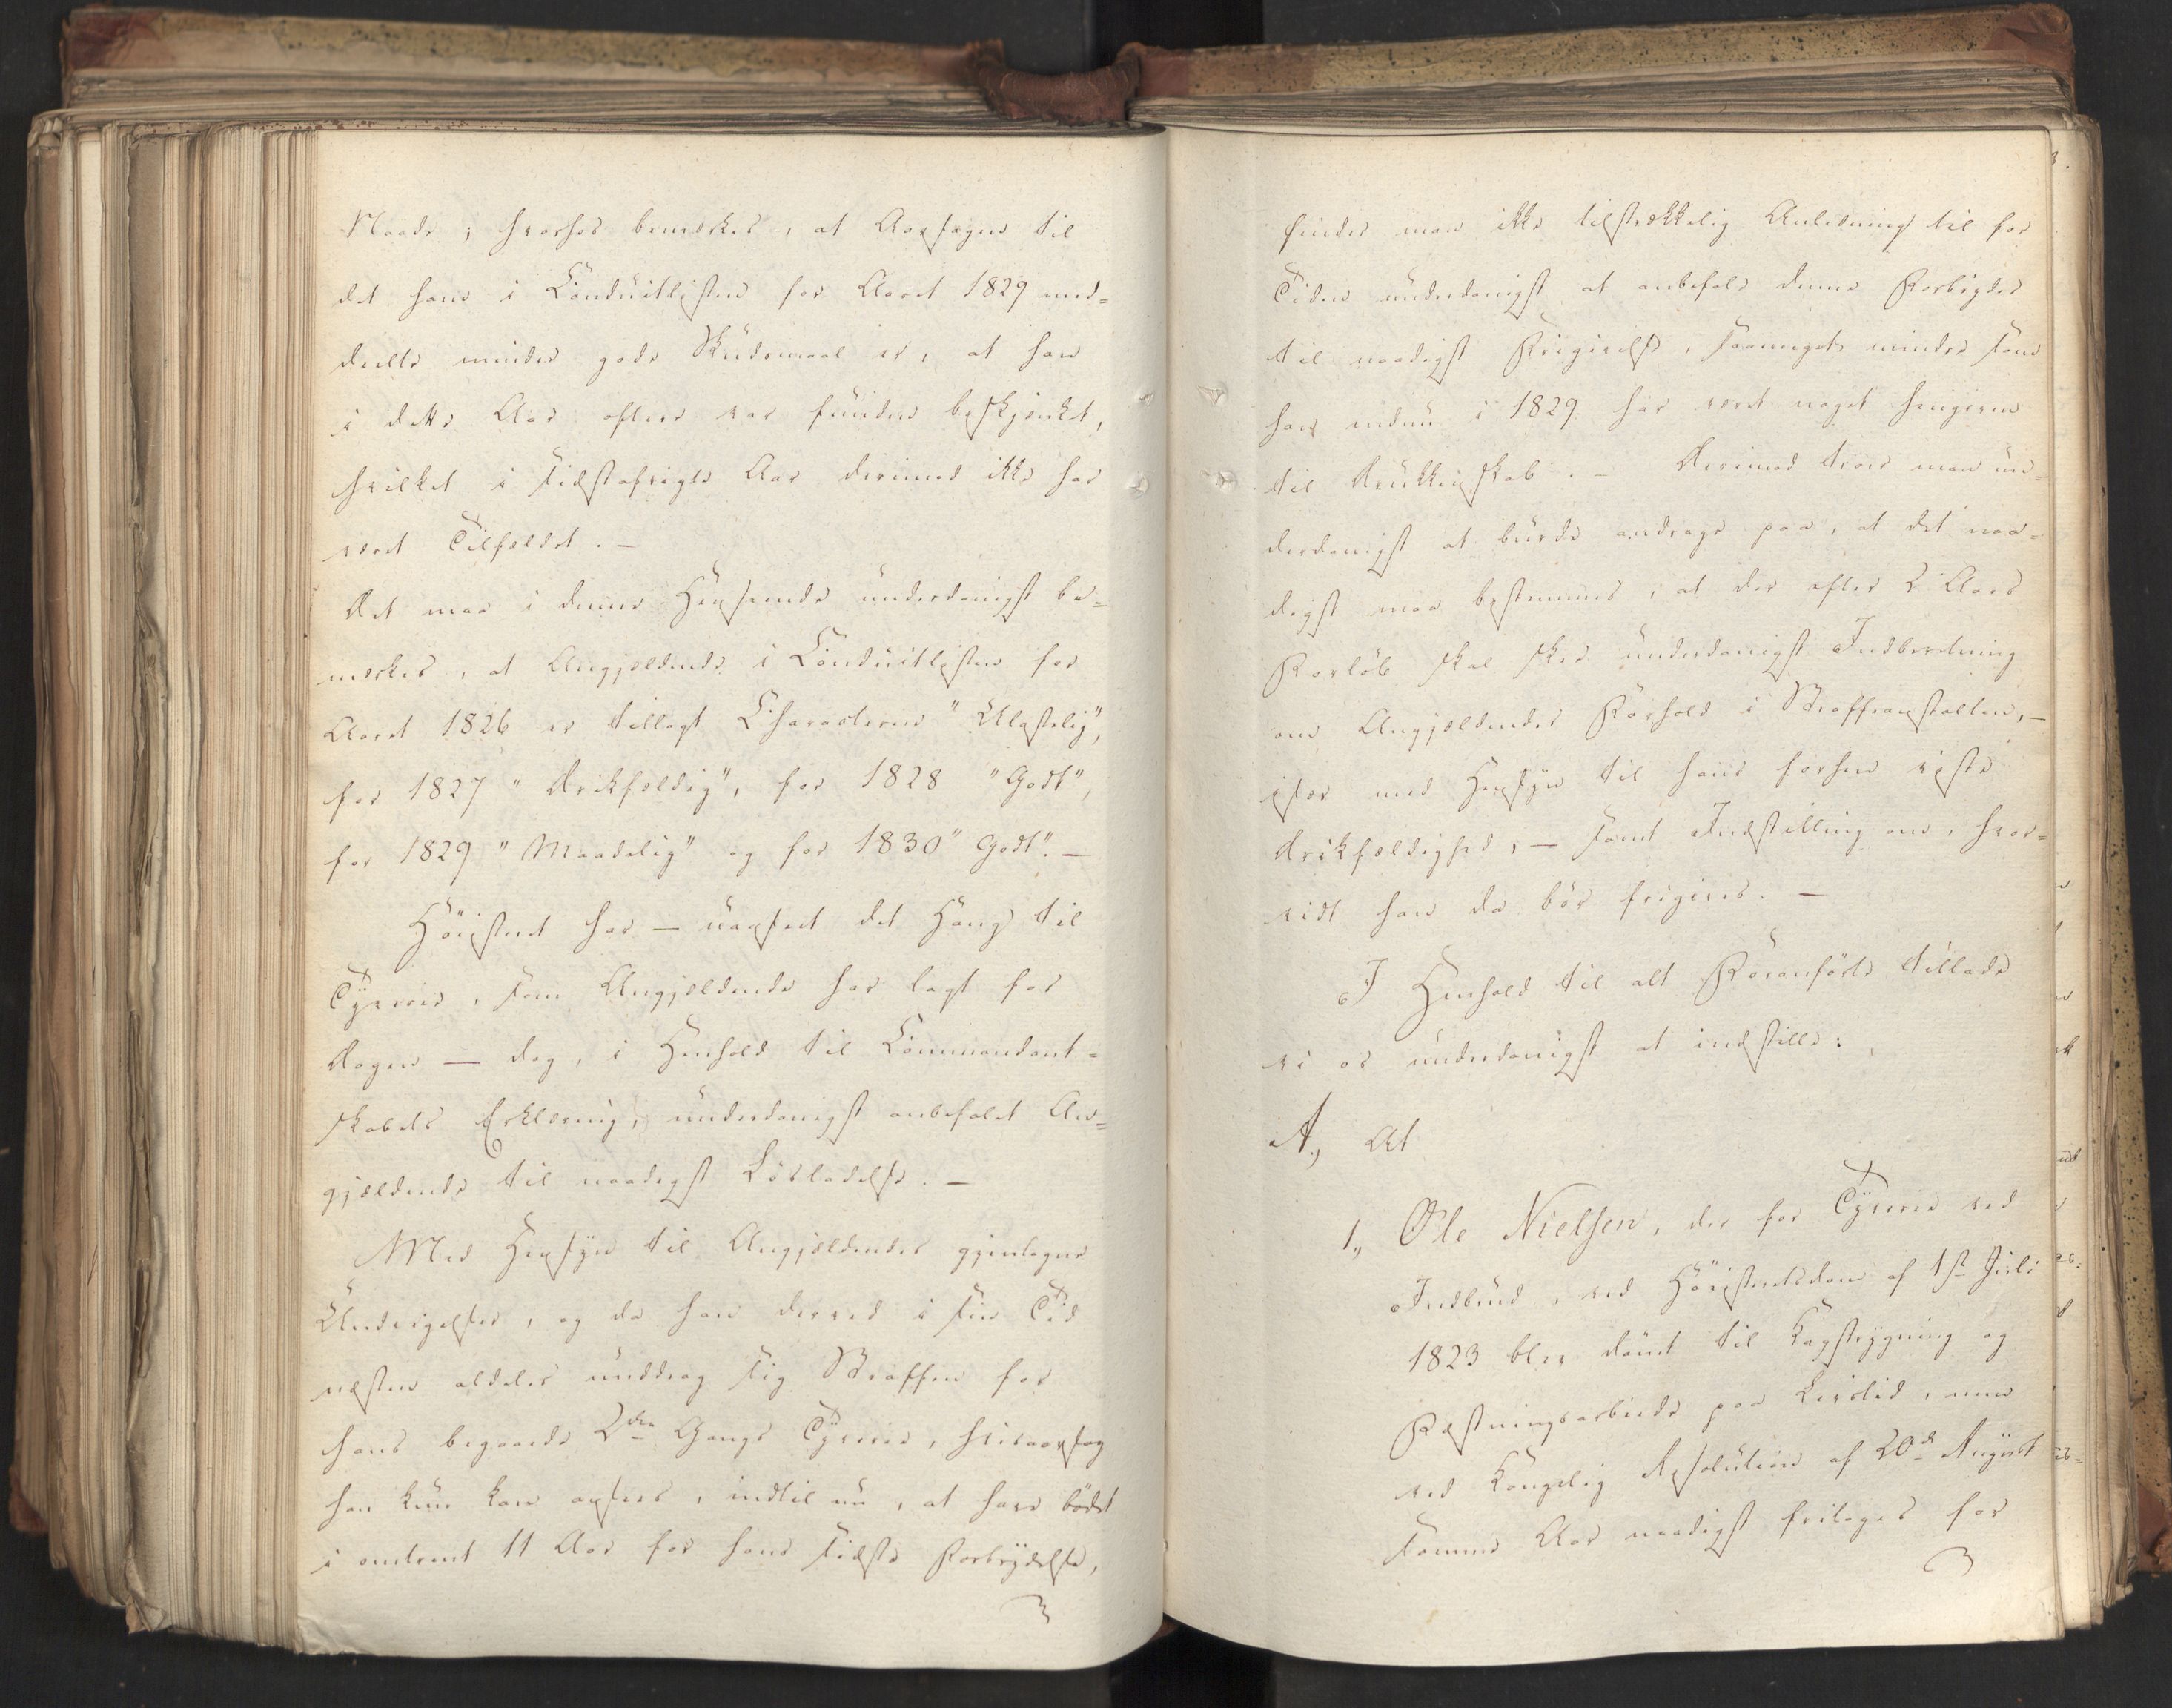 Naade; hvorhos bemærkes, at Aarsagen til
det ham i Conduitlisten for Aaret 1829 med=
deelte mindre gode Skudsmaal er, at han
i dette Aar oftere var funden beskjenket,
hvilket i sidstafvigte Aar derimod ikke har
været Tilfældet. —
Det maa i denne Henseende underdanigst be=
mærkes, at Angjældende i Conduitlisten for
Aaret 1826 er tillagt Characteren "Ulastelig",
for 1827 "Drikfældig", for 1828 "Godt",
for 1829 "Maadelig" og for 1830 "Godt". —
Höiesteret har — uanseet det Hang til
Tyverie, som Angjældende har lagt for
Dagen — dog, i Henhold til Commandant=
skabets Erklæring, underdanigst anbefalet An=
gjældende til naadigst Løsladelse. —
Med Hensyn til Angjældendes gjentagne
Undvigelser, og da han derved i sin Tid
næsten aldeles unddrog sig Straffen for
hans begaaede 2den Gangs Tyverie, hvisaarsag
han kun kan ansees, indtil nu, at have bödet
i omtrent 11 Aar for hans sidste Forbrydelse,
finder man ikke tilstrækkelig Anledning til for
Tiden underdanigst at anbefale denne Forbryder
til naadigst Frigivelse, saameget mindre som
han endnu i 1829 har været noget hengiven
til Drukkenskab. — Derimod troer man un=
derdanigst at burde andrage paa, at det naa=
digst maa bestemmes, at der efter 2 Aars
Forløb skal skee underdanigst Indberetning
om Angjældendes Forhold i Straffeanstalten, —
især med Hensyn til hans forhen viste
Drikfældighed, — samt Indstilling om, hvor=
vidt han da bör frigives. —
I Henhold til alt Foranförte tillade
vi os underdanigst at indstille:
A., At
1,, Ole Nielsen, der for Tyverie ved
Indbrud, ved Höiesteretsdom af 1ste Juli
1823 blev dömt til Kagstrygning og
Fæstningsarbeide paa Livstid, men
ved Kongelig Resolution af 20de August
samme Aar naadigst fritoges for